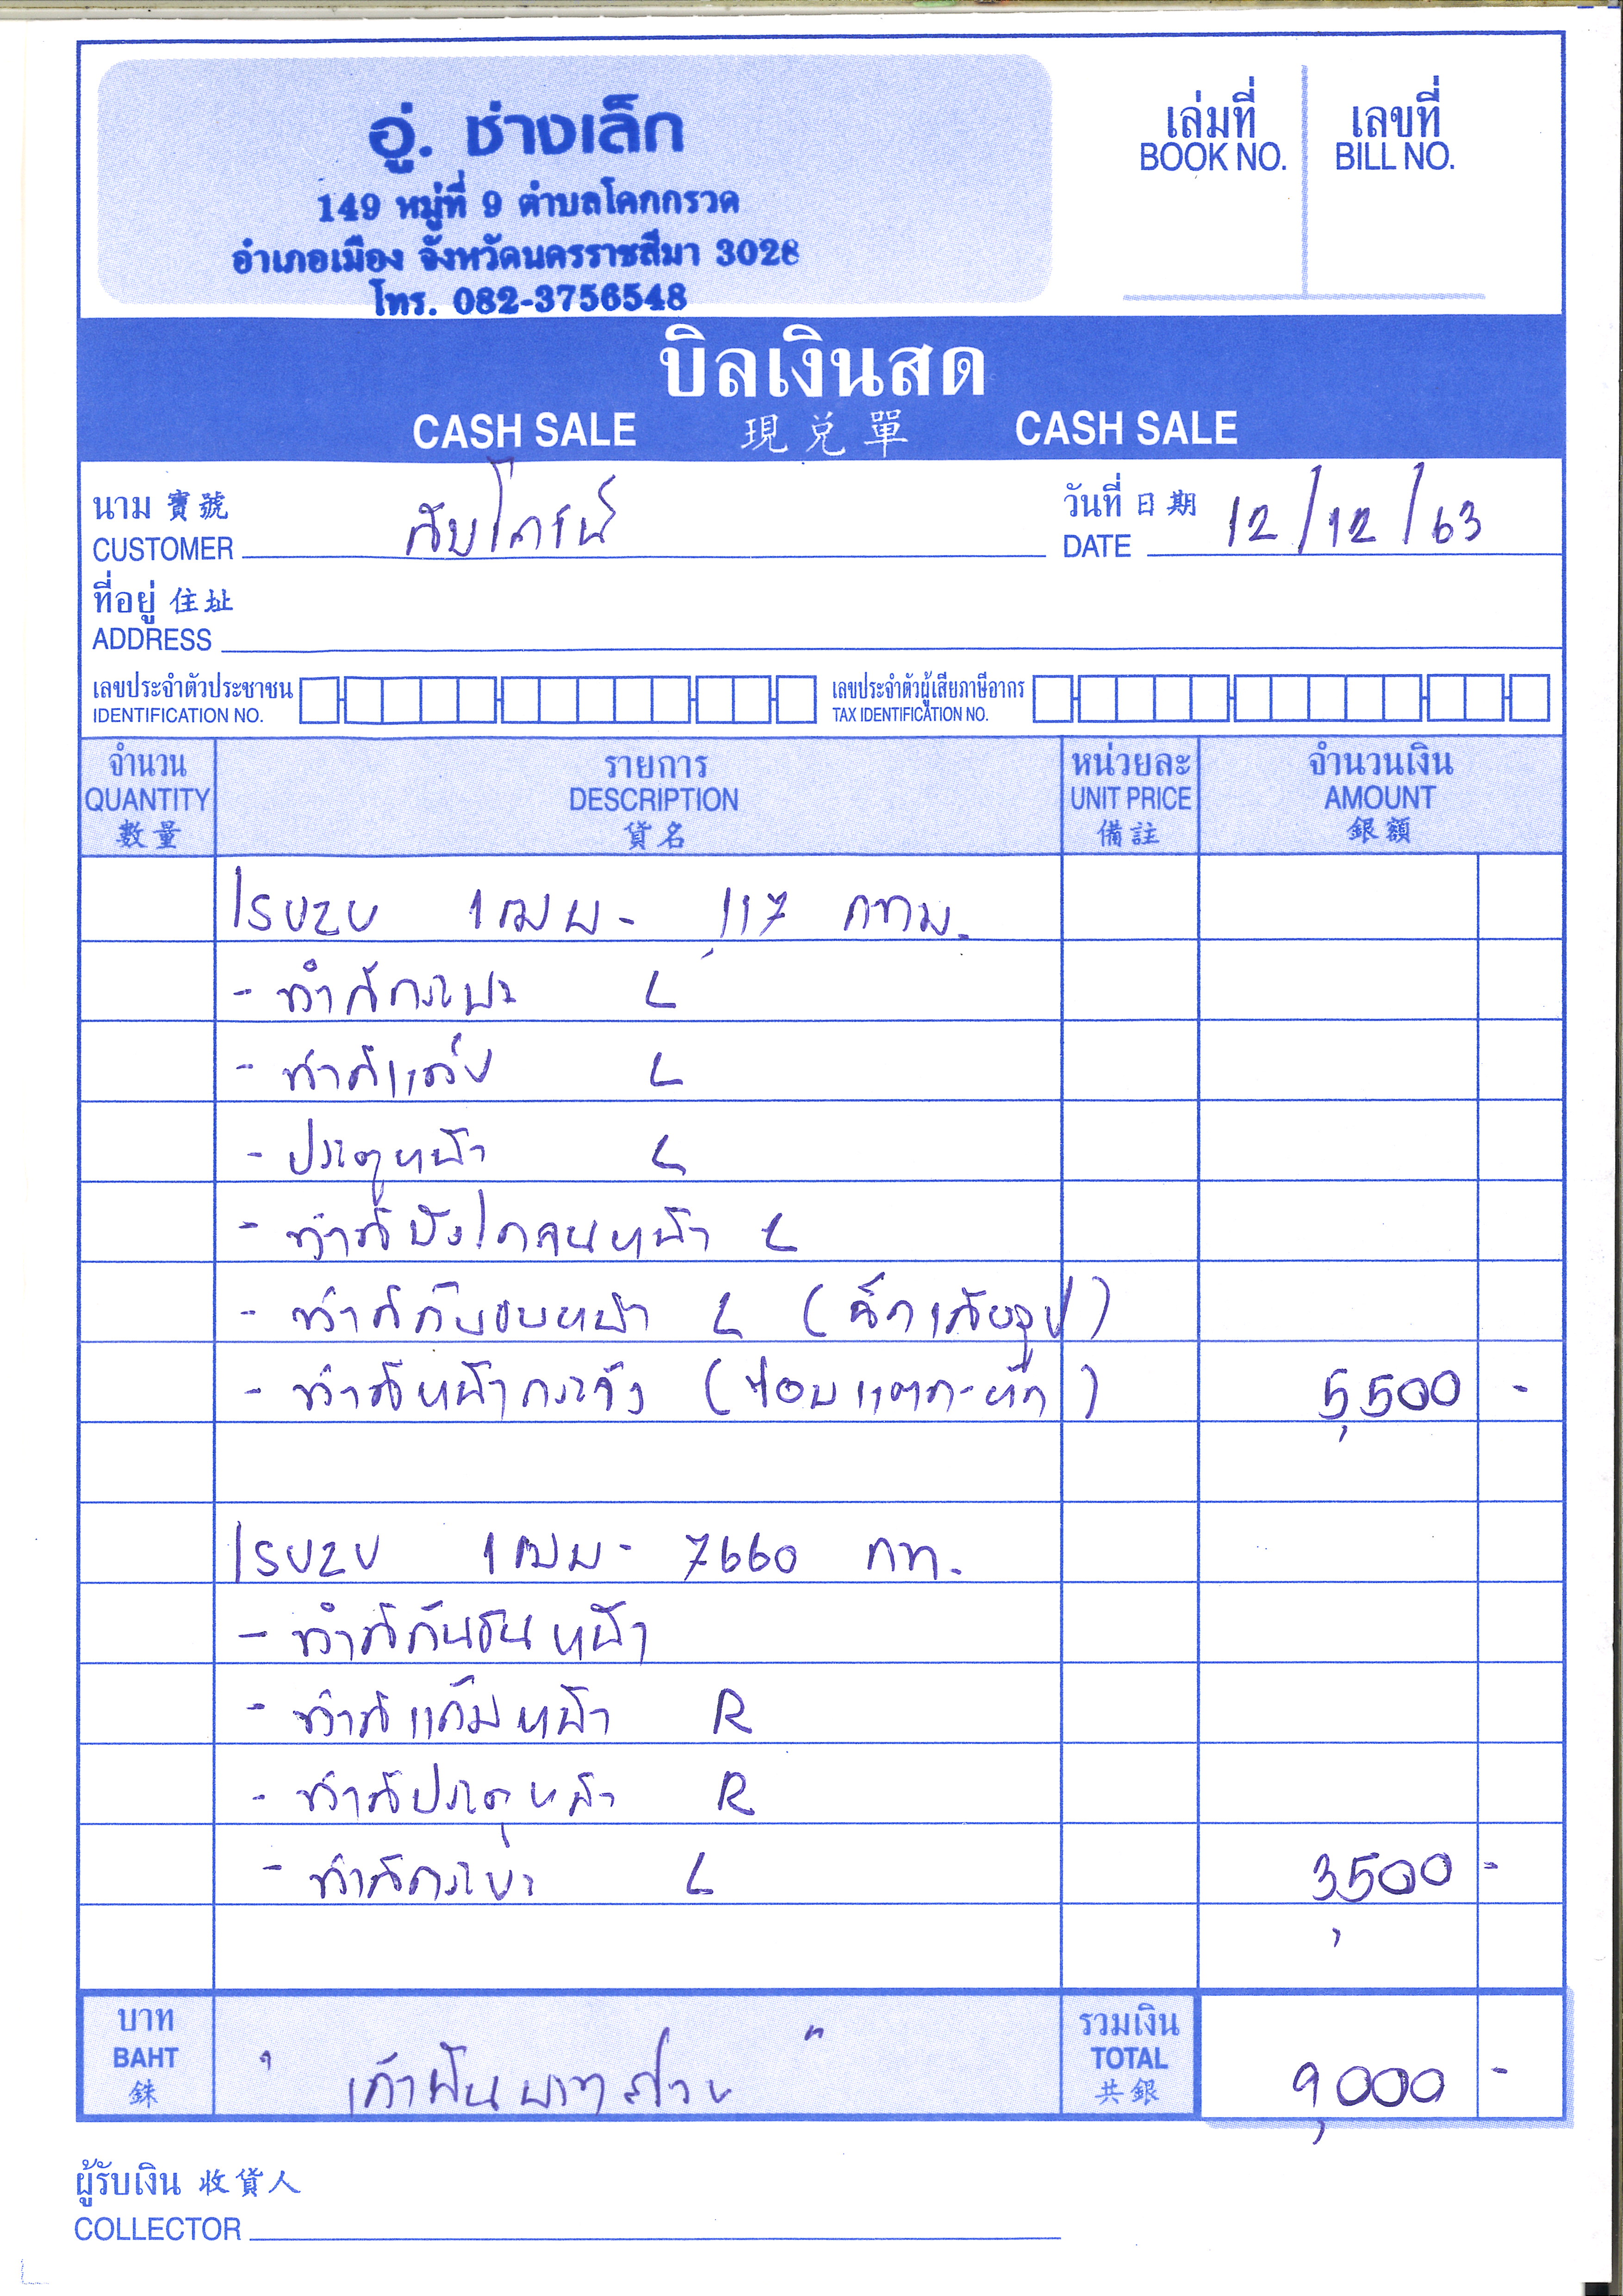 อู่. ช่างเล็ก
149 หมู่ที่ 9 ตำบลโคกกรวด
อำเภอเมือง จังหวัดนครราชสีมา 3028
โทร. 082-3756548
เล่มที่ เลขที่
BOOK NO. BILL NO.
บิลเงินสด
CASH SALE 現兌單 CASH SALE
นาม 寶號 วันที่ 日期 12/12/63
CUSTOMER DATE
ที่อยู่ 住址
ADDRESS
เลขประจำตัวประชาชน เลขประจำตัวผู้เสียภาษีอากร
IDENTIFICATION NO. TAX IDENTIFICATION NO.
จำนวน รายการ หน่วยละ จำนวนเงิน
QUANTITY DESCRIPTION UNIT PRICE AMOUNT
數量 貨名 備註 銀額
ISUZU 1ฒผ- 117 กทม.
- ทำสีกระบะ L
- ทำสีแค๊ป L
- ประตูหน้า L
- ทำสีบังโคลนหน้า L
- ทำสีกันชนหน้า L
- ทำสีหน้ากระจัง (ซ่อมแตก-หัก) 5,500 -
ISUZU 1ฒผ- 7660 กท.
- ทำสีกันชนหน้า
- ทำสีแก้มหน้า R
- ทำสีประตูหน้า R
- ทำสีกระบะ L 3,500 -
บาท รวมเงิน
BAHT " เก้าพันบาทถ้วน " TOTAL 9,000 -
銖 共銀
ผู้รับเงิน 收貨人
COLLECTOR